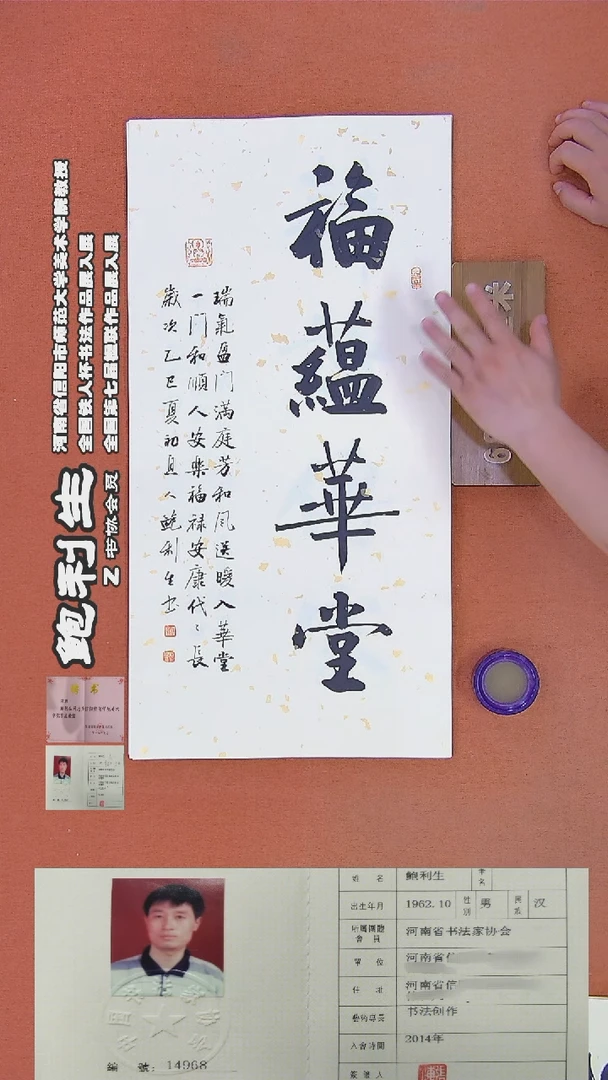 福蕴華堂
瑞氣盈门满庭芳和风送暖入華堂
一门和順人安樂福禄安康代〻長
歲次乙巳夏初豆人鲍利生书
河南省信阳市师范大学美术学院教授
全国教人杯书法作品展入展
全国第七届楹联作品展入展
鲍利生
Z 书协会员
姓 名 鲍利生
出生年月 1962.10 性别 男 民族 汉
所屬團體會員 河南省书法家协会
單 位 河南省信
住 址 河南省信
藝術專長 书法创作
入會時間 2014年
簽發人
编 號: 14968